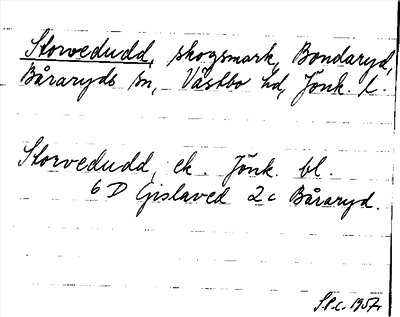 Storvedudd, skogsmark, Bondaryd,
Båraryds sn, Västbo hd, Jönk. l.
Storvedudd, ek. Jönk. bl.
6 D Gislaved 2 c Båraryd.
1957.